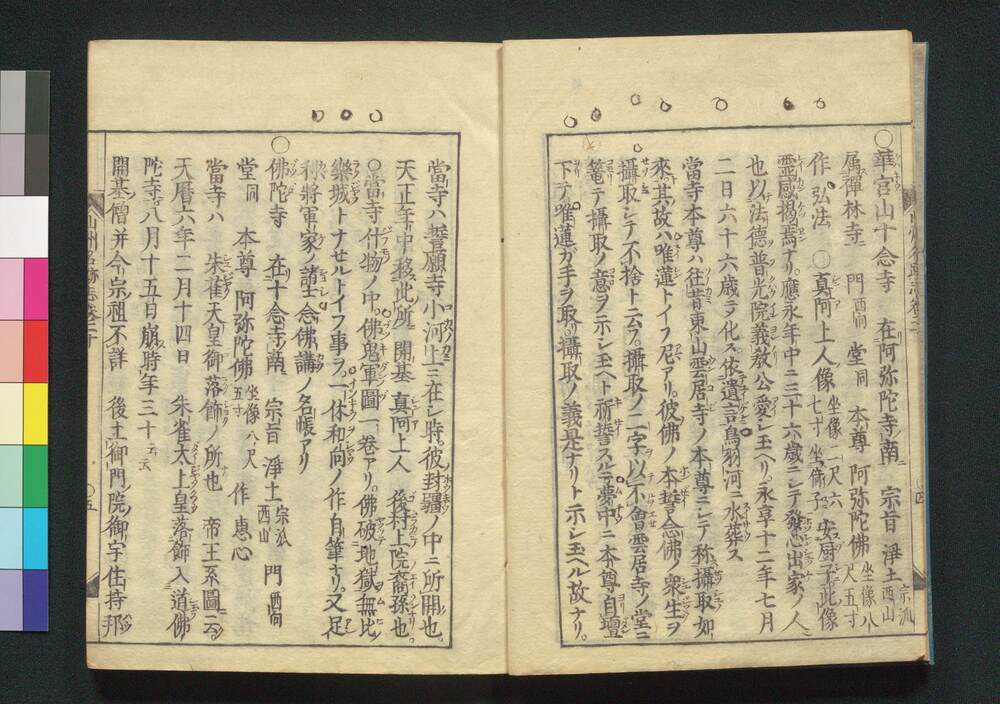 ○華宮山十念寺　在阿弥陀寺南　宗旨 浄土 宗派西山
属禪林寺　門 西向　堂 同　本尊 阿弥陀佛 坐像八尺五寸
作 弘法　○真阿上人像 坐像一尺六七寸 安厨子 此像
霊感掲焉ナリ。應永年中ニ三十六歳ニシテ發心出家ノ人
也以法德普光院義教公愛シ玉ヘリ。永享十二年七月
二日六十六歳ヲ化ス依遺言鳥羽河ニ水葬ス
當寺本尊ハ往昔東山雲居寺ノ本尊ニシテ称攝取如
來其故ハ唯蓮トイフ尼アリ。彼佛ノ本誓念佛ノ衆生ヲ
攝取シテ不捨ト云フ。攝取ノ二字以不會雲居寺ノ堂ニ
篭テ攝取ノ意ヲ示シ玉ヘト祈誓スルニ夢中ニ本尊自壇
下テ唯蓮ガ手ヲ取攝取ノ義是ナリト示シ玉ヘル故ナリ。
當寺ハ誓願寺小河上ニ在シ時。彼封疆ノ中ニ所開也。
天正年中移此所　開基 真阿上人　後村上院裔孫也
○當寺什物ノ中。佛鬼軍圖一卷アリ。佛破地獄無比
樂城トナセルトイフ事ヲ。一休和尚ノ作自筆ナリ。又足
利將軍家ノ諸士念佛講ノ名帳アリ
○佛陀寺　在十念寺南　宗旨 浄土 宗派西山　門 西向
堂 同　本尊 阿弥陀佛 坐像八尺五寸　作 惠心
當寺ハ　朱雀天皇御落飾ノ所也　帝王系圖ニ云
天暦六年二月十四日　朱雀太上皇落飾入道佛
陀寺八月十五日崩時年三十 云云
開基僧并今宗祖不詳　後土御門院御宇住持邦